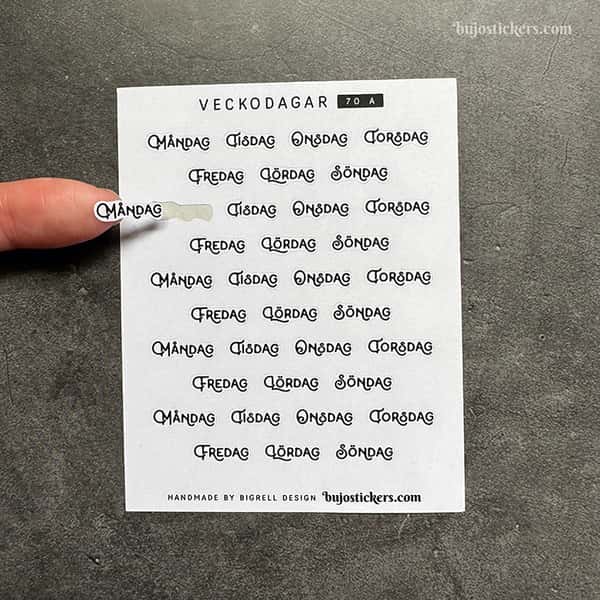 bujostickers.com
VECKODAGAR 70 A
Måndag Tisdag Onsdag Torsdag
Fredag Lördag Söndag
Måndag Tisdag Onsdag Torsdag
Fredag Lördag Söndag
Måndag Tisdag Onsdag Torsdag
Fredag Lördag Söndag
Måndag Tisdag Onsdag Torsdag
Fredag Lördag Söndag
Måndag Tisdag Onsdag Torsdag
Fredag Lördag Söndag
HANDMADE BY BIGRELL DESIGN bujostickers.com